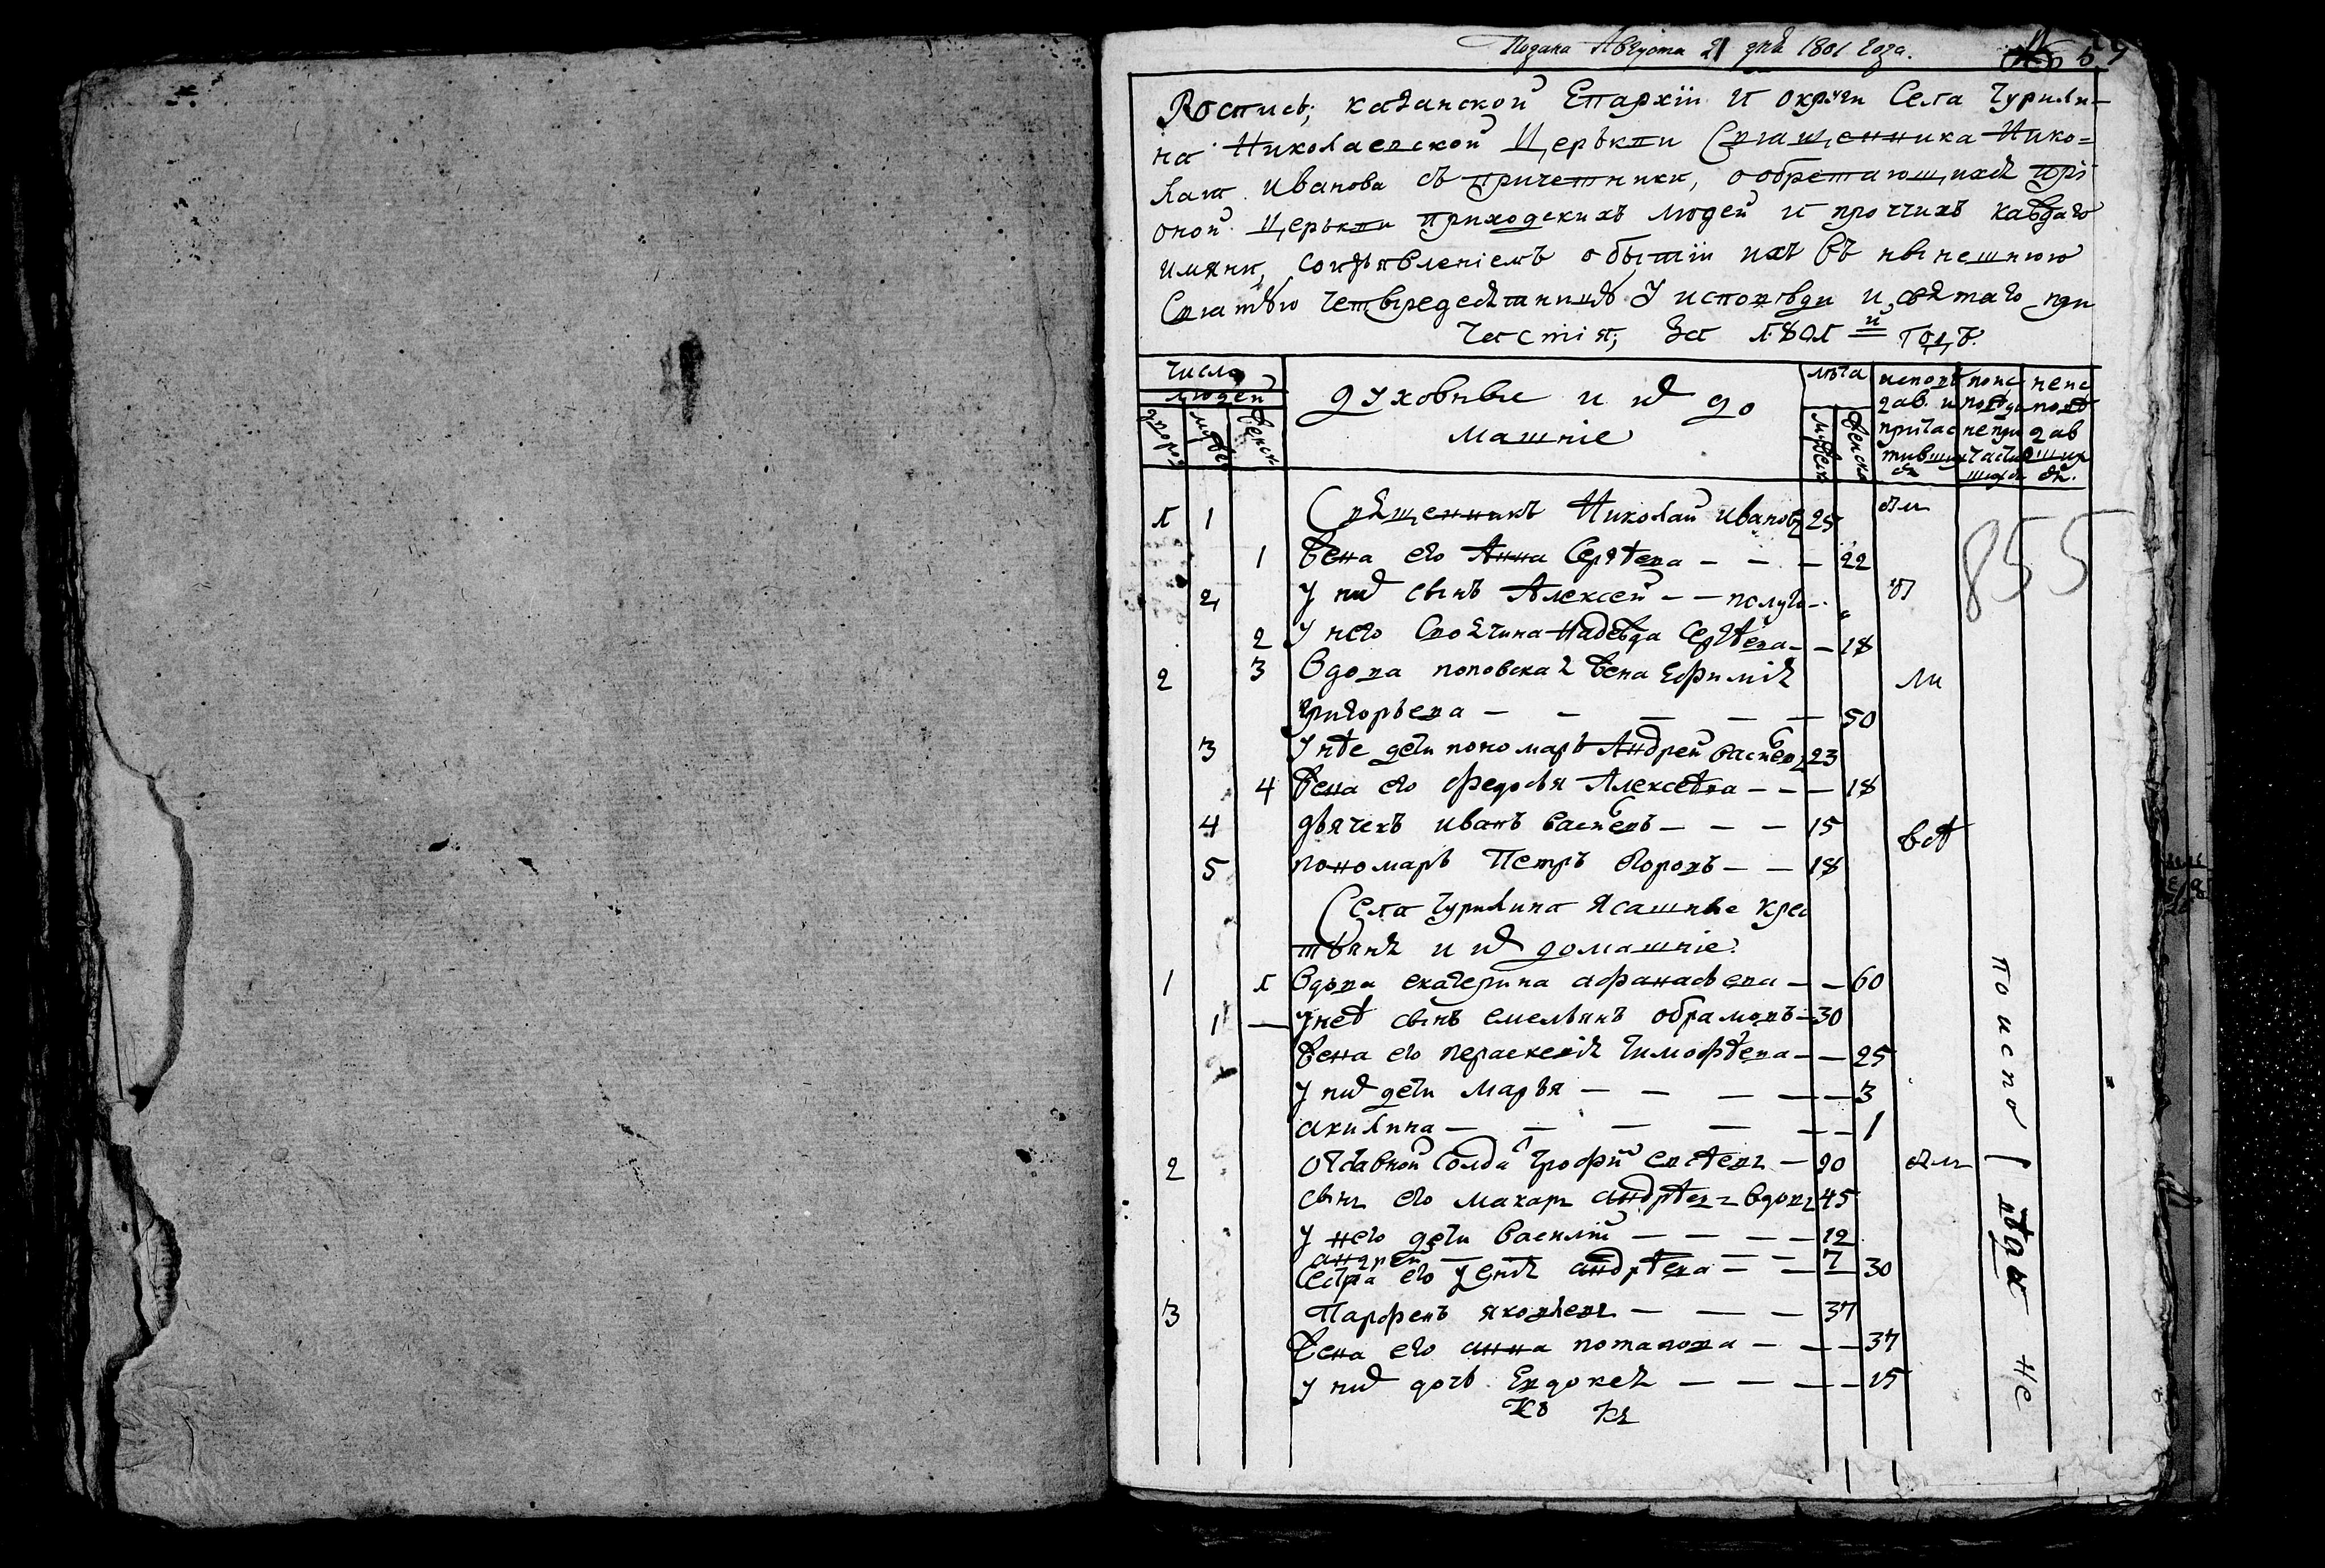 Подана Августа 21 дня 1801 года.
Роспись, казанской Епархіи и округи Села Чурили-
на Николаевской Церькви Священника Нико=
лая Иванова съ причетники, ообретающихся при
оной Церькви приходскихъ людей и протчихъ каждаго
имяни, созъявленіемъ обытіи ихъ въ нынешнюю
Святую четвередесятницу У исповѣди и святаго при
частія, За 1801 й Годъ.
число людей
двороз
мужес
женск
духовные и их до
машніе
лѣта
мужеск
женска
исповѣ
дав. и
причас
тивших
ся
испо
поведи
непри
части
шихся
неис
повѣ
дав
ших
ся.
1 1 Священникъ Николай Ивановъ 25
1 Жена его Анна Сергѣева 22
2 У них сынъ Алексей полуго
2 У него своячина Надежда Сергѣева 18
2 3 Вдова поповская жена Ефимія
григорьева 50
3 У нѣе дети пономарь Андрей Василев 23
4 Жена его Федосья Алексѣева 18
4 дьячекъ иванъ Василевъ 15
5 пономарь Петръ Егоровъ 18
всѣ
Села Чурилина Ясашные крес
тьяня и их домашніе
1 1 Вдова екатерина афанасьева 60
1 Унеѣ сынъ емельянъ обрамовъ 30
Жена его параскевія тимофѣева 25
У них дети Марья 3
акилина 1
2 Отставной солда трофи 90
сынъ его макаръ андрѣев вдовъ 45
У него дети Василій 12
андрей 7
Сестра его андрѣева 30
3 Парфенъ яковлевъ 37
Жена его анна потапова 37
У них дочь Евдокея 15
по испо вѣди не
855